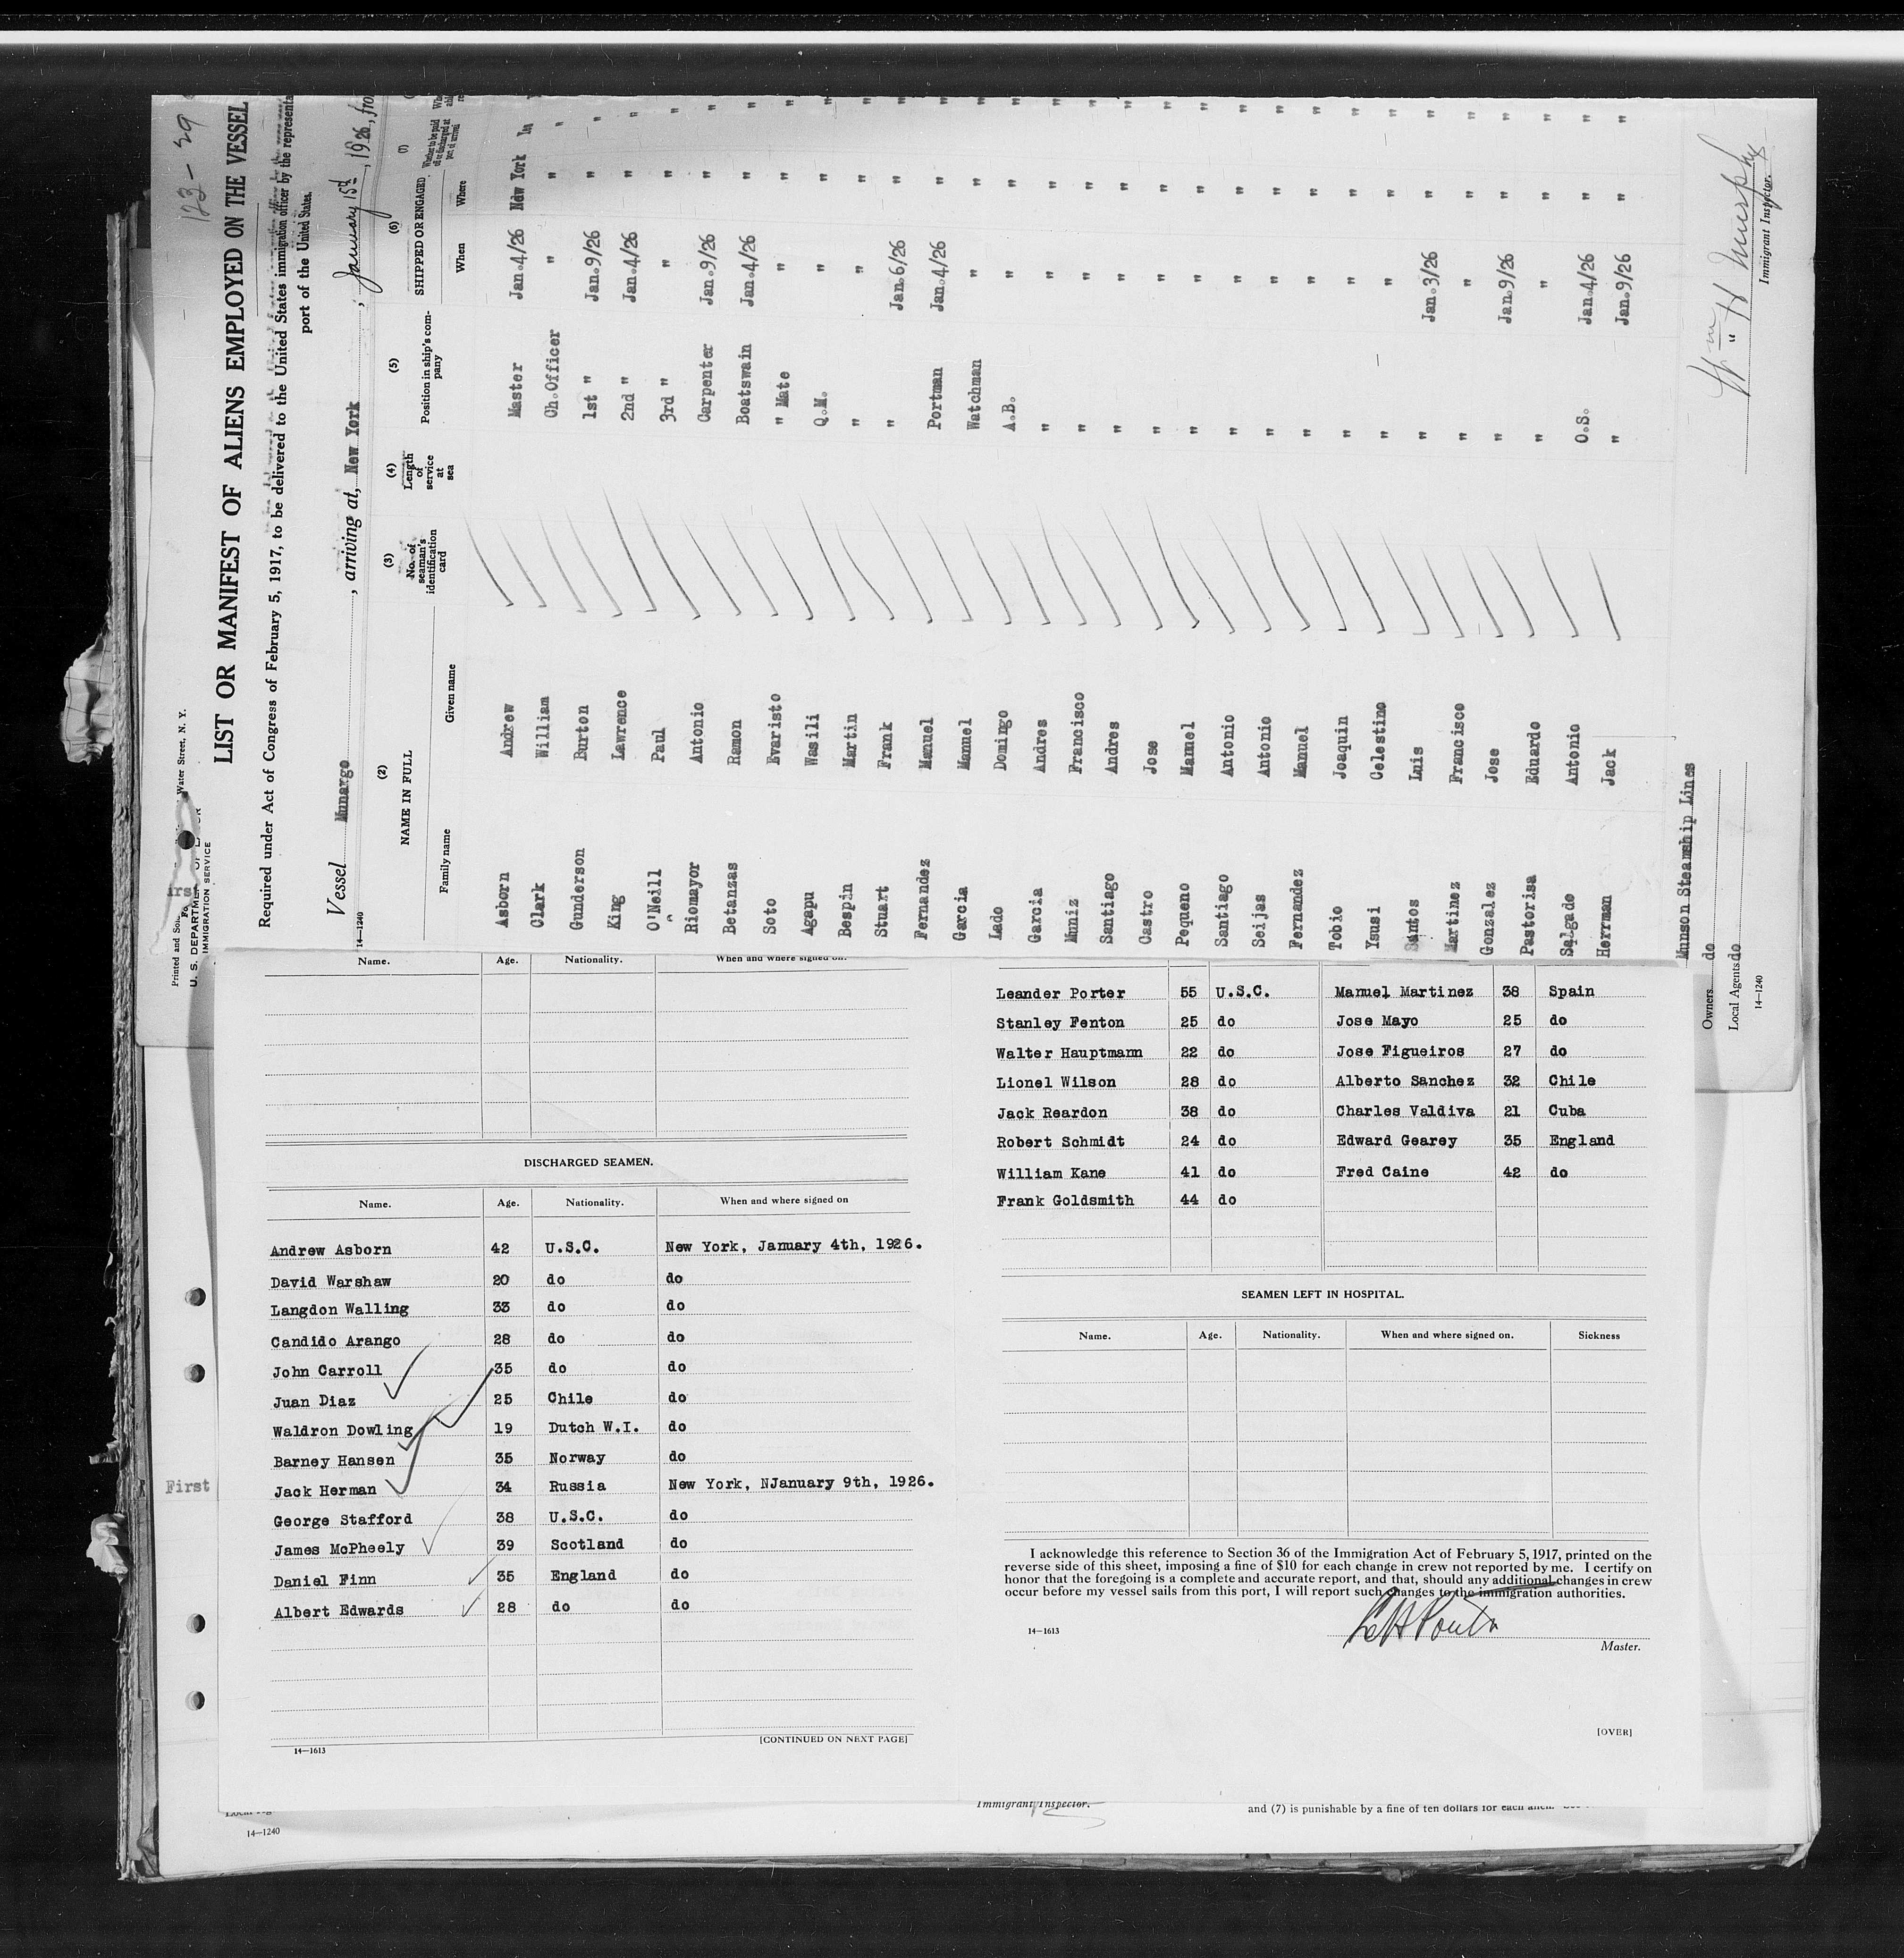 123 - 29
Water Street, N. Y.
Printed and Sold
U. S. DEPARTMENT OF
IMMIGRATION SERVICE
LIST OR MANIFEST OF ALIENS EMPLOYED ON THE VESSEL
Required under Act of Congress of February 5, 1917, to be delivered to the United States immigration officer by the representa
port of the United States.
Vessel Munargo, arriving at, New York, January 15th, 1926, fro
14—1240
(2) (3) (4) (5) (6) (7)
NAME IN FULL No. of seaman's identification card Length of service at sea Position in ship's company SHIPPED OR ENGAGED Whether to be paid off or discharged at port of arrival
Family name Given name When Where
Asborn Andrew Master Jan.4/26 New York
Clark William Ch.Officer " " "
Gunderson Burton 1st " Jan.9/26 " "
King Lawrence 2nd " Jan.4/26 " "
O'Neill Paul 3rd " " " "
Riomayor Antonio Carpenter Jan.9/26 " "
Betanzas Ramon Boatswain Jan.4/26 " "
Soto Evaristo " Mate " " "
Agapu Wasili Q.M. " " "
Bespin Martin " " " "
Stuart Frank " Jan.6/26 " "
Fernandez Manuel Portman Jan.4/26 " "
Garcia Manuel Watchman " " "
Lado Domingo A.B. " " "
Garcia Andres " " " "
Muniz Francisco " " " "
Santiago Andres " " " "
Castro Jose " " " "
Pequeno Manuel " " " "
Santiago Antonio " " " "
Seijas Antonio " " " "
Fernandez Manuel " " " "
Tobio Joaquin " " " "
Ysusi Celestino " " " "
Santos Luis " Jan.3/26 " "
Martinez Francisco " " " "
Gonzalez Jose " Jan.9/26 " "
Pastorisa Eduardo " " " "
Salgado Antonio O.S. Jan.4/26 " "
Herrman Jack " Jan.9/26 " "
Munson Steamship Lines
Owners do
Local Agents do
14—1240
Wm H Murphy
Immigrant Inspector.
Name. Age. Nationality. When and where signed on.
DISCHARGED SEAMEN.
Name. Age. Nationality. When and where signed on
Andrew Asborn 42 U.S.C. New York, January 4th, 1926.
David Warshaw 20 do do
Langdon Walling 33 do do
Candido Arango 28 do do
John Carroll 35 do do
Juan Diaz 25 Chile do
Waldron Dowling 19 Dutch W.I. do
Barney Hansen 35 Norway do
Jack Herman 34 Russia New York, NJanuary 9th, 1926.
George Stafford 38 U.S.C. do
James McPheely 39 Scotland do
Daniel Finn 35 England do
Albert Edwards 28 do do
[CONTINUED ON NEXT PAGE]
14—1613
First
Leander Porter 55 U.S.C. Manuel Martinez 38 Spain
Stanley Fenton 25 do Jose Mayo 25 do
Walter Hauptmann 22 do Jose Figueiros 27 do
Lionel Wilson 28 do Alberto Sanchez 32 Chile
Jack Reardon 38 do Charles Valdiva 21 Cuba
Robert Schmidt 24 do Edward Gearey 35 England
William Kane 41 do Fred Caine 42 do
Frank Goldsmith 44 do
SEAMEN LEFT IN HOSPITAL.
Name. Age. Nationality. When and where signed on. Sickness
I acknowledge this reference to Section 36 of the Immigration Act of February 5, 1917, printed on the
reverse side of this sheet, imposing a fine of $10 for each change in crew not reported by me. I certify on
honor that the foregoing is a complete and accurate report, and that, should any additional changes in crew
occur before my vessel sails from this port, I will report such changes to the immigration authorities.
14—1613
Master.
[OVER]
Immigrant Inspector.
and (7) is punishable by a fine of ten dollars for each alien.
14—1240